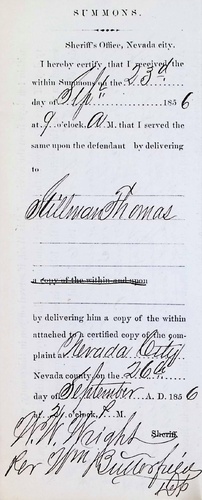 SUMMONS.
Sheriff's Office, Nevada city.
I hereby certify, that I received the
within Summons on the 23d
day of Sept 1856
at 9 o'clock, A M. that I served the
same upon the defendant by delivering
to
Stillman Thomas
a copy of the within and upon
by delivering him a copy of the within
attached to a certified copy of the com-
plaint at Nevada City
Nevada county on the 26th
day of September A. D. 1856
at 2 o'clock, P. M.
W. W. Wright Sheriff.
Per Wm Butterfield